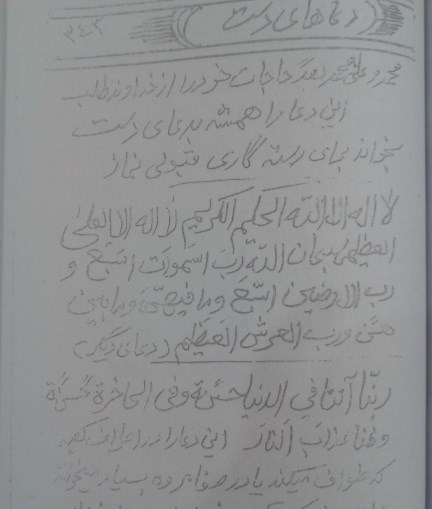 دعاهای دست ۳۴۳
محمد و علی محمد بعد حاجات خود را از خداوند طالب
این دعا را همیشه بدعای دست
بخواند برای رستگاری قبولی نماز
لا اله الا الله الحلیم الکریم لا اله الا العلی
العظیم سبحان الله رب اسموات اسبع و
رب الارضین اسبع وما فیهن وما بین
هن ورب العرش العظیم (دعای دیگر)
ربنا آتنا فی الدنیا حسنة وفی الاخرة حسنة
وقنا عذاب النار این دعا را در اطراف کعبه
که طواف میکند یا در صفا مروه بسیار میخواند